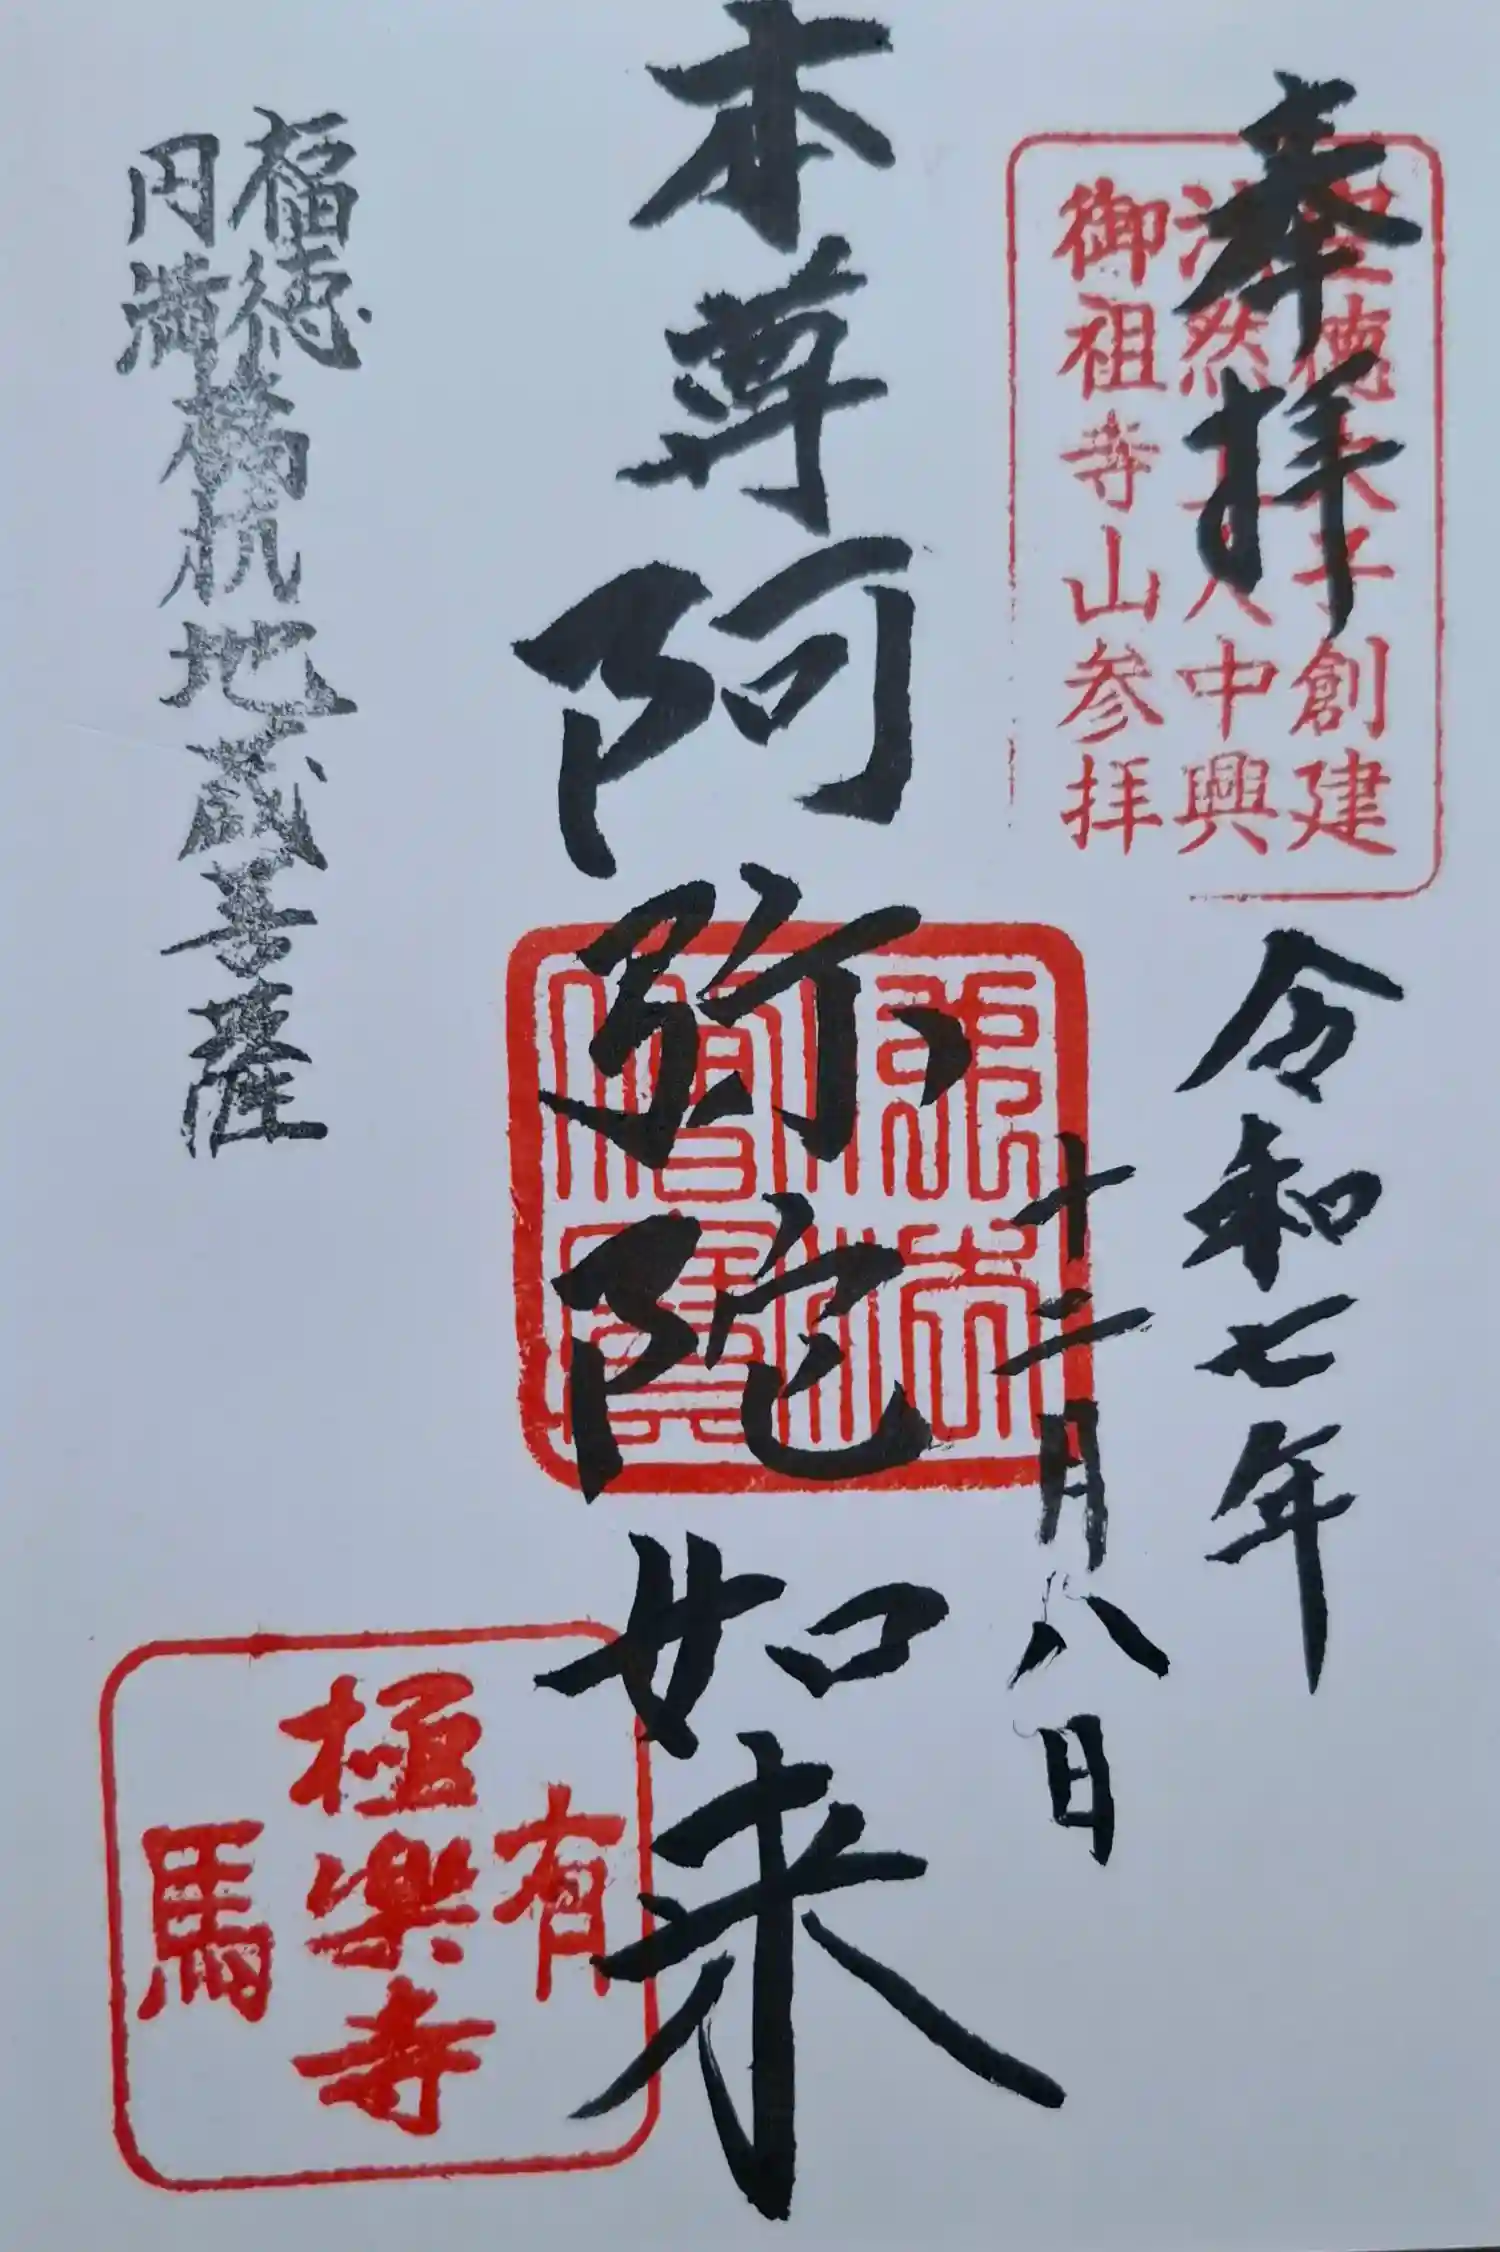 奉拝
聖徳太子創建
法然上人中興
御祖寺山参拝
令和七年
十二月八日
本尊阿弥陀如来
福徳
円満
橋杭地蔵菩薩
有馬
極楽寺